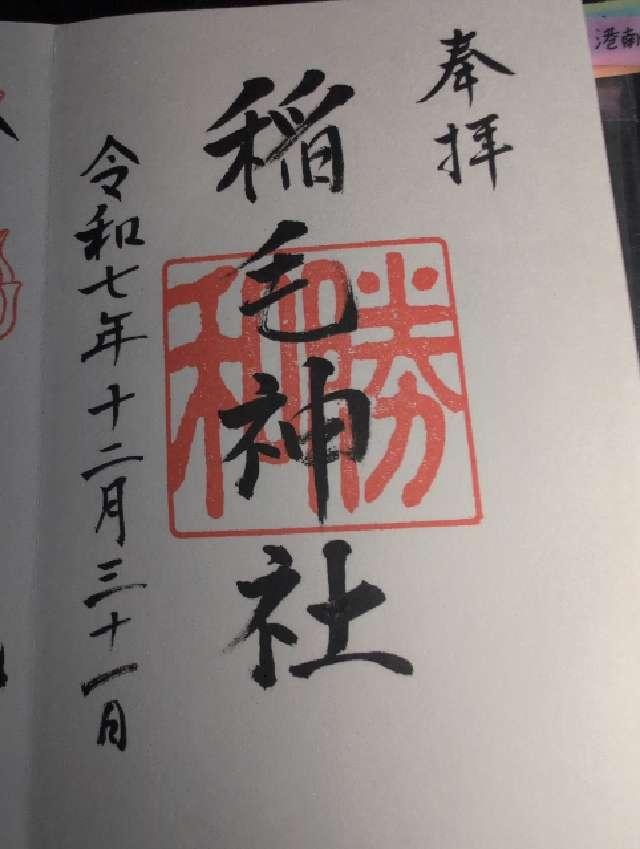 奉拝
稲毛神社
勝利
令和七年十二月三十一日
港南